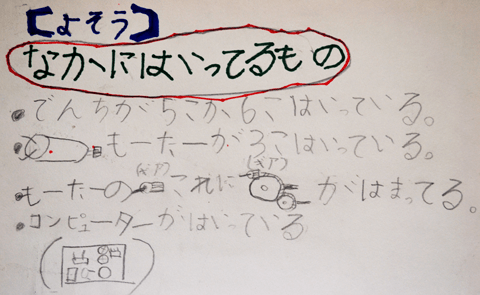 【よそう】
なかへにはいってるもの
・でんちが5こか6こはいっている。
・もーたーが3こはいっている。
(ぎあ) (ぎあ)
もーたーのこれにがはまってる。
・コンピューターがはいっている